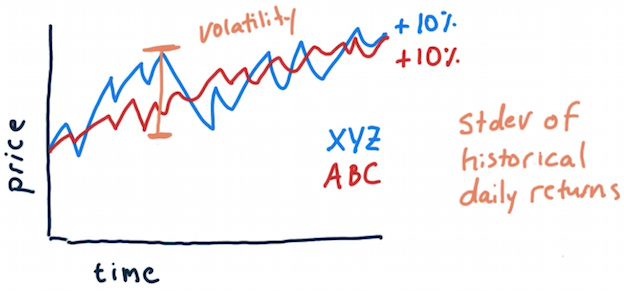 volatility
+10%
+10%
price
XYZ
ABC
stdev of
historical
daily returns
time